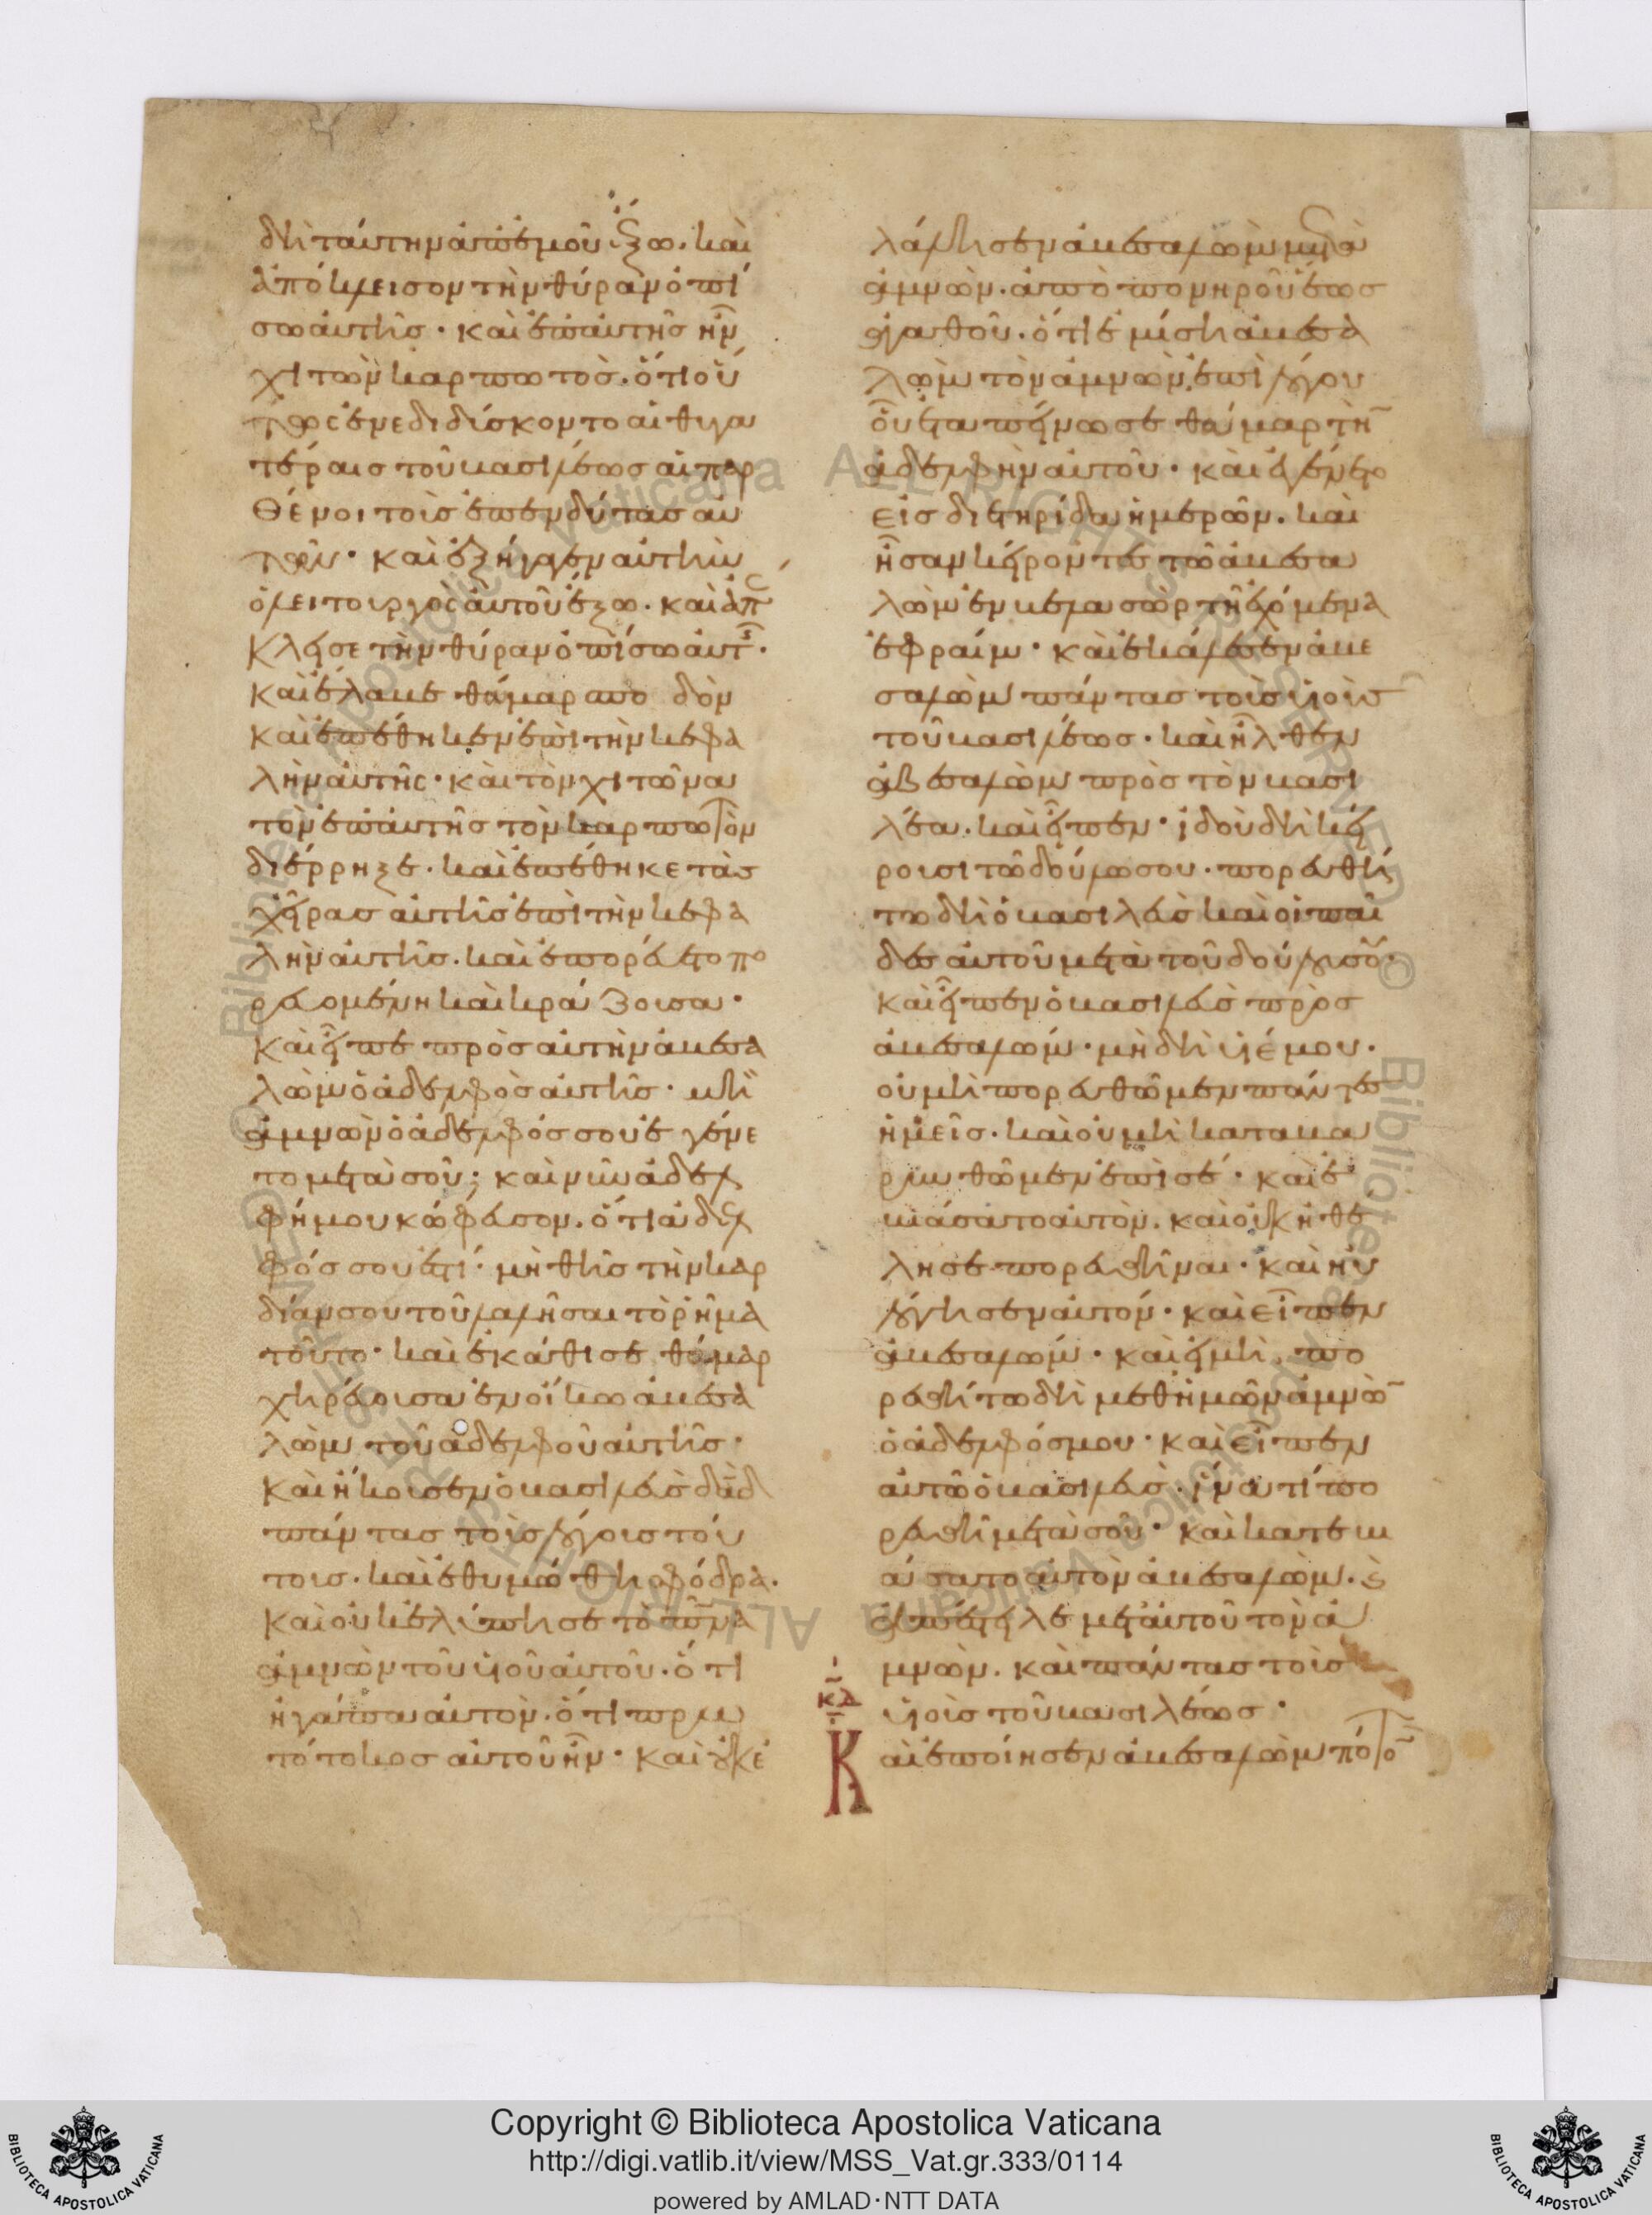 δὴ ταύτην ἀπ ἐμοῦ ἔξω· καὶ
ἀπόκλεισον τὴν θύραν ὀπί
σω αὐτῆς· καὶ ἐπ αὐτῆς ἦν
χιτὼν καρπωτὸς· ὅτι οὕ
τως ἐνεδιδύσκοντο αἱ θυγα
τέραις τοῦ βασιλέως αἱ παρ
θένοι τοὺς ἐπενδύτας αὐ
τῶν· καὶ ἐξήγαγεν αὐτὴν
ὁ λειτουργὸς αὐτοῦ ἔξω· καὶ ἀπ
έκλεισε τὴν θύραν ὀπίσω αὐτῆς·
καὶ ἔλαβε θάμαρ σπο δὸν
καὶ ἐπέθηκεν ἐπὶ τὴν κεφα
λὴν αὐτῆς· καὶ τὸν χιτῶνα
τὸν ἐπ αὐτῆς τὸν καρπωτὸν
διέρρηξε· καὶ ἐπέθηκε τὰς
χεῖρας αὐτῆς ἐπὶ τὴν κεφα
λὴν αὐτῆς· καὶ ἐπορεύετο πο
ρευομένη καὶ κράζουσα·
καὶ εἶπε πρὸς αὐτὴν ἀβεσα
λὼμ ὁ ἀδελφὸς αὐτῆς· μὴ
ἀμνὼν ὁ ἀδελφός σου ἐγένε
το μετὰ σοῦ; καὶ νῦν ἀδελ
φή μου κώφευσον· ὅτι ἀδελ
φός σου ἐστί· μὴ θῇς τὴν καρ
δίαν σου τοῦ λαλῆσαι τὸ ῥῆμα
τοῦτο· καὶ ἐκάθισε θάμαρ
χηρεύουσα ἐν οἴκω ἀβεσα
λὼμ τοῦ ἀδελφοῦ αὐτῆς·
καὶ ἤκουσεν ὁ βασιλεὺς δαδ
πάντας τοὺς λόγους τού
τους· καὶ ἐθυμώθη σφόδρα·
καὶ οὐκ ἐλύπησε τὸ πνα
ἀμνὼν τοῦ υἱοῦ αὐτοῦ· ὅτι
ἠγάπα αὐτὸν· ὅτι πρω
τότοκος αὐτοῦ ἦν· καὶ οὐκ ἐ
λάλησεν ἀβεσαλὼμ μετὰ
ἀμνὼν· ἀπὸ πονηροῦ ἕως
ἀγαθοῦ· ὅτι ἐμίση ἀβεσα
λὼμ τὸν ἀμνὼν, ἐπὶ λόγου
οὗ ἐταπείνωσε θάμαρ τὴν
ἀδελφὴν αὐτοῦ· καὶ ἐγένετο
εἰς διετηρίδα ἡμερῶν· καὶ
ἦσαν κείροντες τῶ ἀβεσα
λὼμ ἐν βελασὼρ τῇ ἐχόμενα
ἐφραίμ· καὶ ἐκάλεσεν ἀβε
σαλὼμ πάντας τοὺς υἱοὺς
τοῦ βασιλέως· καὶ ἦλθεν
ἀβεσαλὼμ πρὸς τὸν βασι
λέα· καὶ εἶπεν· ἰδοὺ δὴ κεί
ρουσι τῶ δούλω σου· πορευθή
τω δὴ ὁ βασιλεὺς καὶ οἱ παῖ
δες αὐτοῦ μετὰ τοῦ δούλου σου·
καὶ εἶπεν ὁ βασιλεὺς πρὸς
ἀβεσαλώμ· μὴ δὴ υἱέ μου·
οὐ μὴ πορευθῶμεν πάντες
ἡμεῖς· καὶ οὐ μὴ καταβα
ρυνθῶμεν ἐπὶ σέ· καὶ ἐ
βιάσατο αὐτὸν· καὶ οὐκ ἠθέ
λησε πορευθῆναι· καὶ ηὐ
λόγησεν αὐτόν· καὶ εἶπεν
ἀβεσαλώμ· καὶ εἰ μὴ, πο
ρευθήτω δὴ μεθ ἡμῶν ἀμνὼν
ὁ ἀδελφός μου· καὶ εἶπεν
αὐτῶ ὁ βασιλεὺς· ἵνα τί πο
ρευθῇ μετὰ σοῦ· καὶ κατεβι
άσατο αὐτὸν ἀβεσαλὼμ· καὶ
ἀπέστειλε μετ αὐτοῦ τὸν ἀ
μνὼν· καὶ πάντας τοὺς
υἱοὺς τοῦ βασιλέως·
κδ
Καὶ ἐποίησεν ἀβεσαλὼμ πότον
Copyright © Biblioteca Apostolica Vaticana
http://digi.vatlib.it/view/MSS_Vat.gr.333/0114
powered by AMLAD·NTT DATA